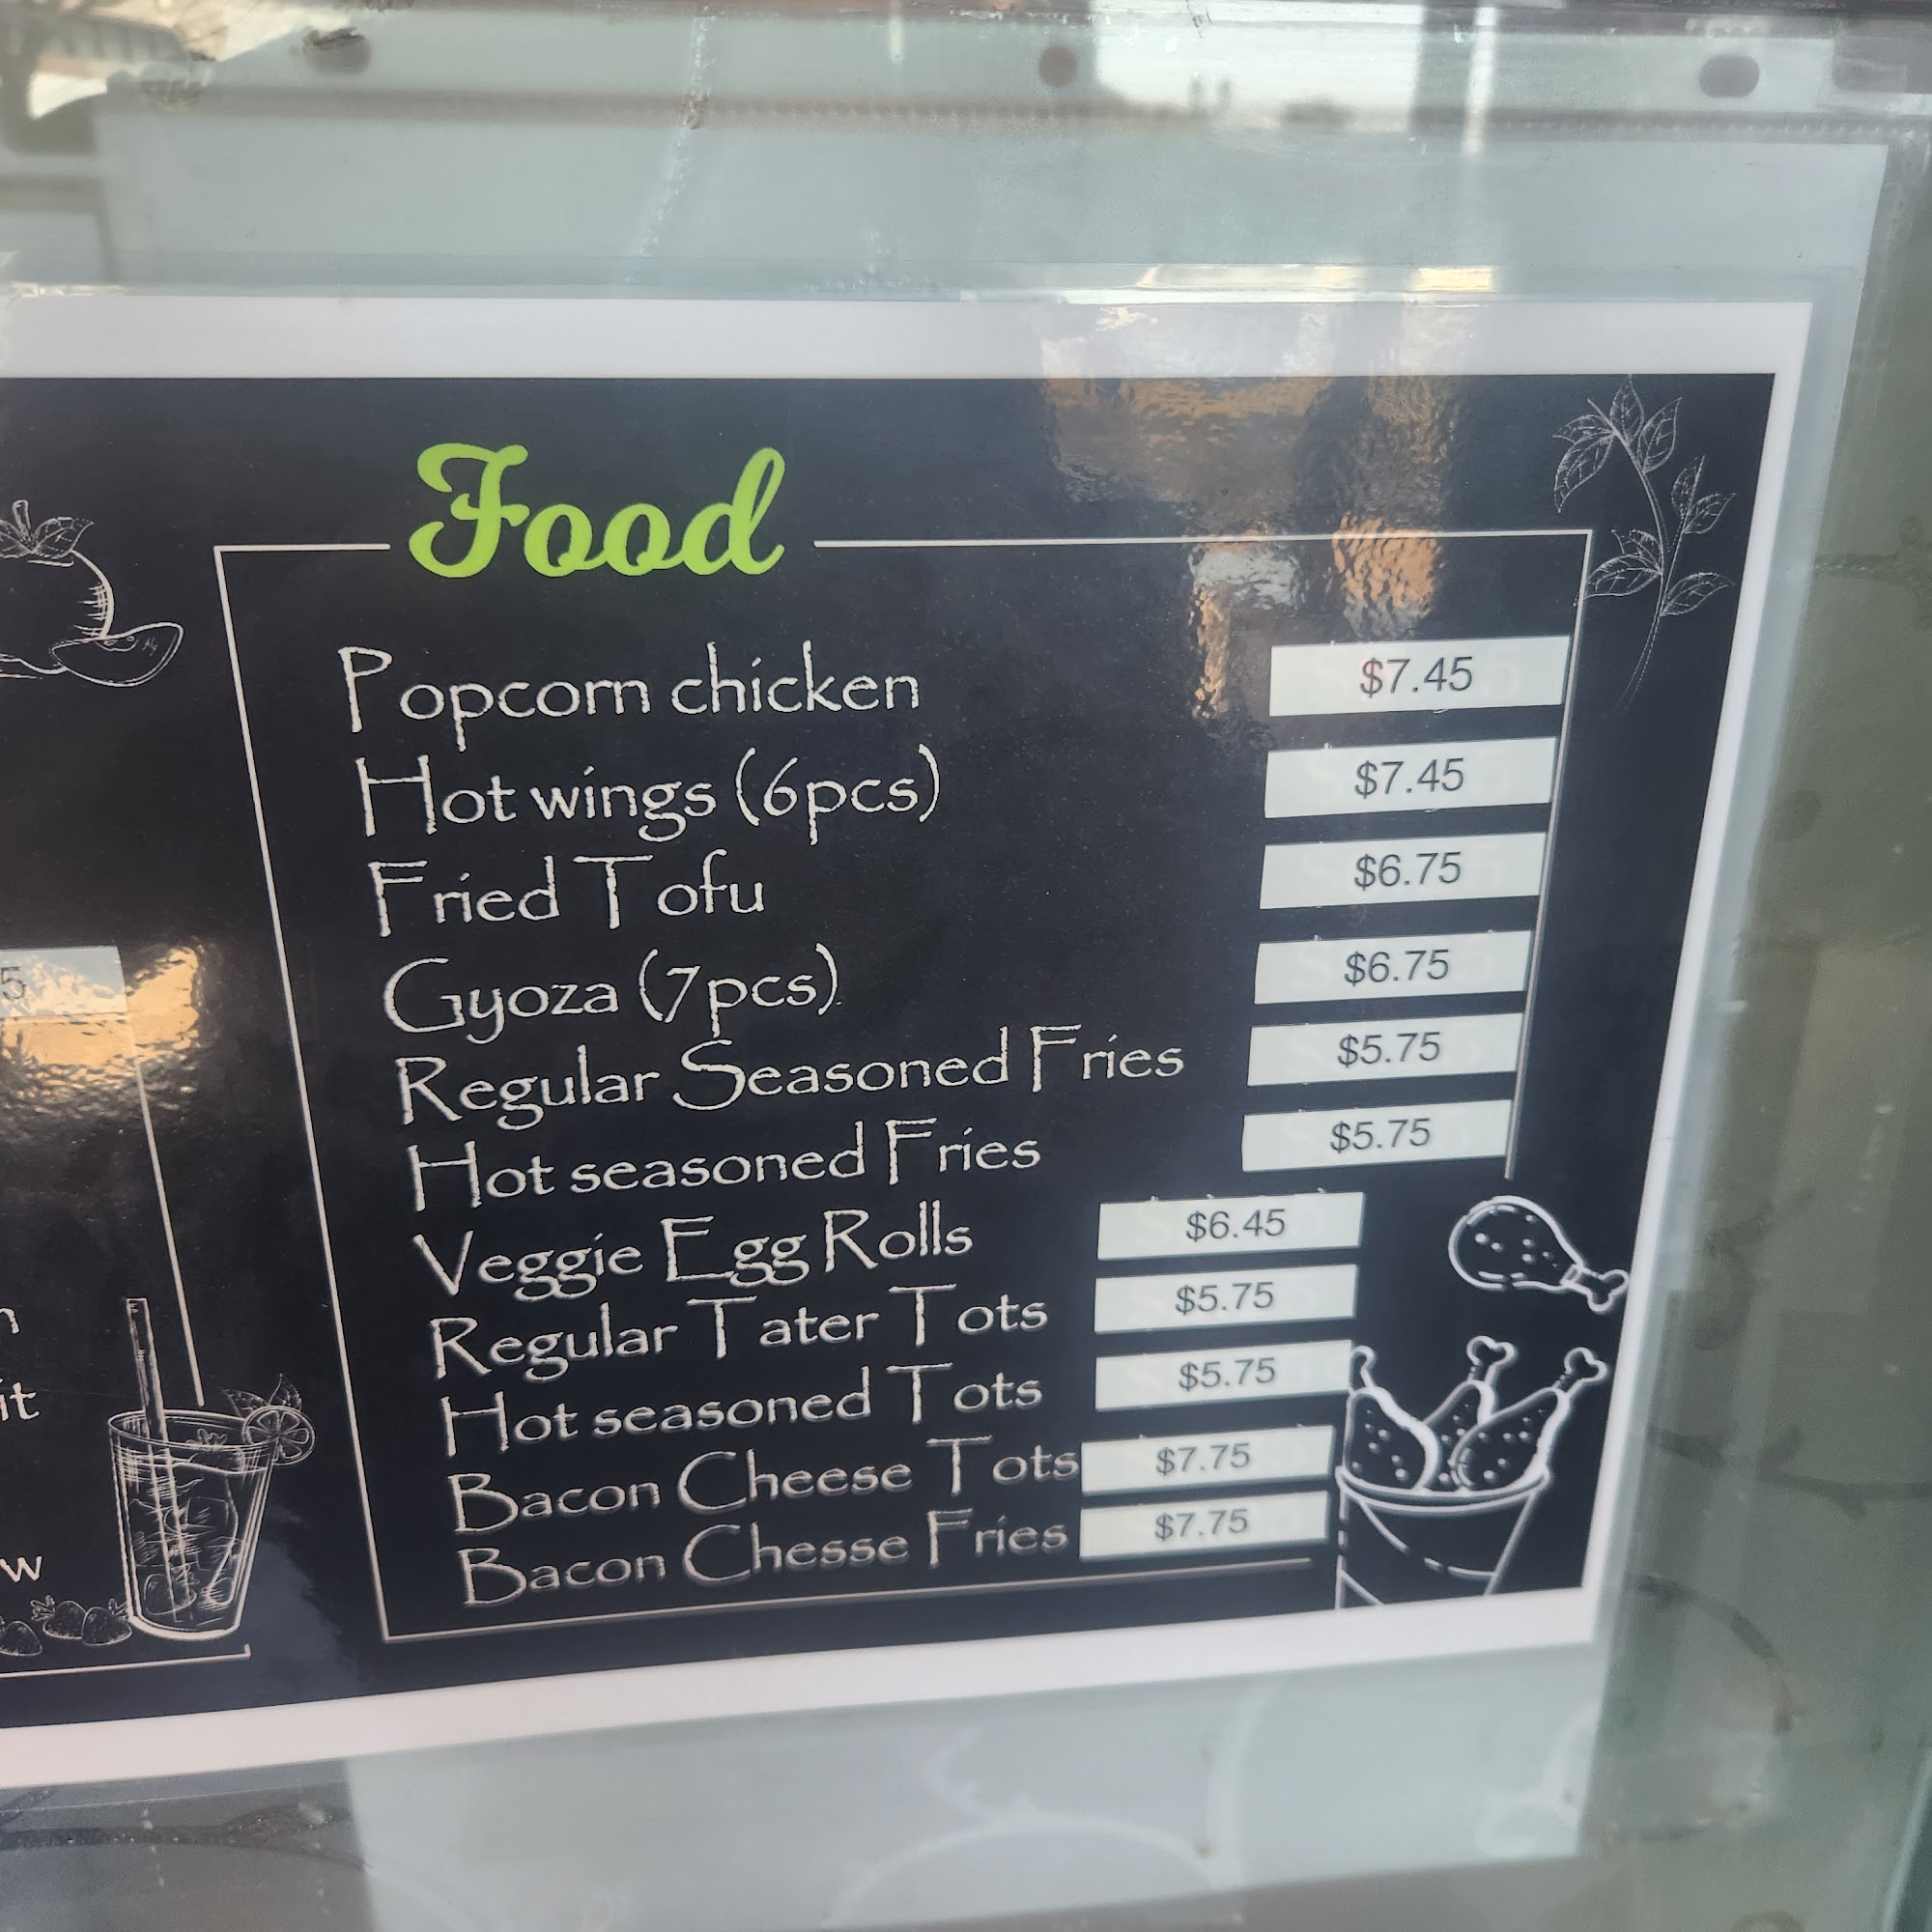 Food
Popcorn chicken $7.45
Hot wings (6pcs) $7.45
Fried Tofu $6.75
Gyoza (7pcs) $6.75
Regular Seasoned Fries $5.75
Hot seasoned Fries $5.75
Veggie Egg Rolls $6.45
Regular Tater Tots $5.75
Hot seasoned Tots $5.75
Bacon Cheese Tots $7.75
Bacon Chesse Fries $7.75